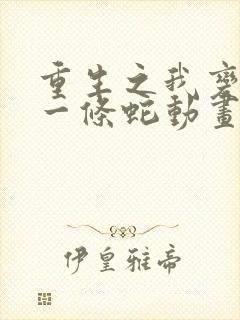 重生之我變
一條蛇動畫
伊皇雅帝